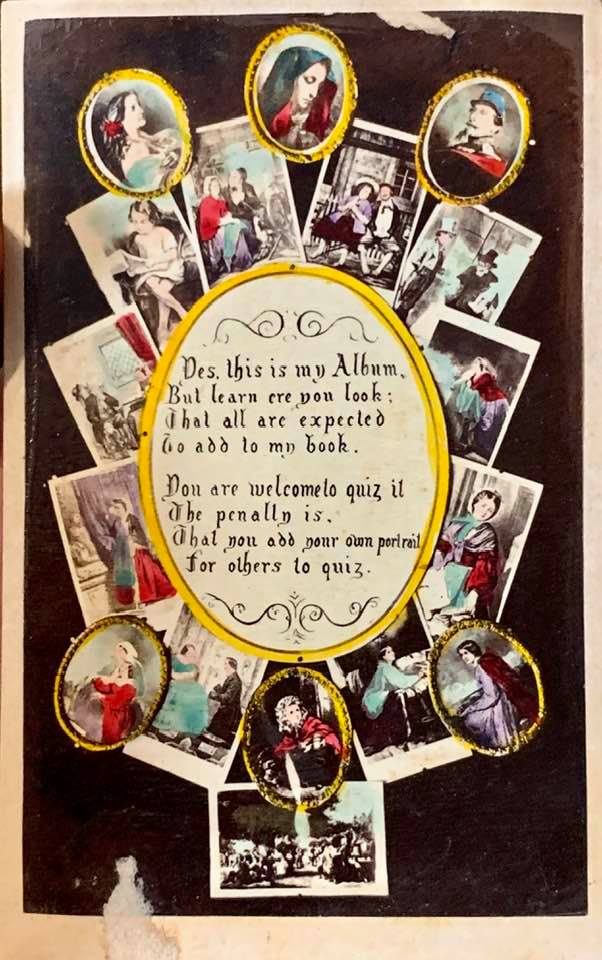 Yes, this is my Album,
But learn ere you look;
That all are expected
To add to my book.
You are welcometo quiz it
The penalty is,
That you add your own portrait
for others to quiz.